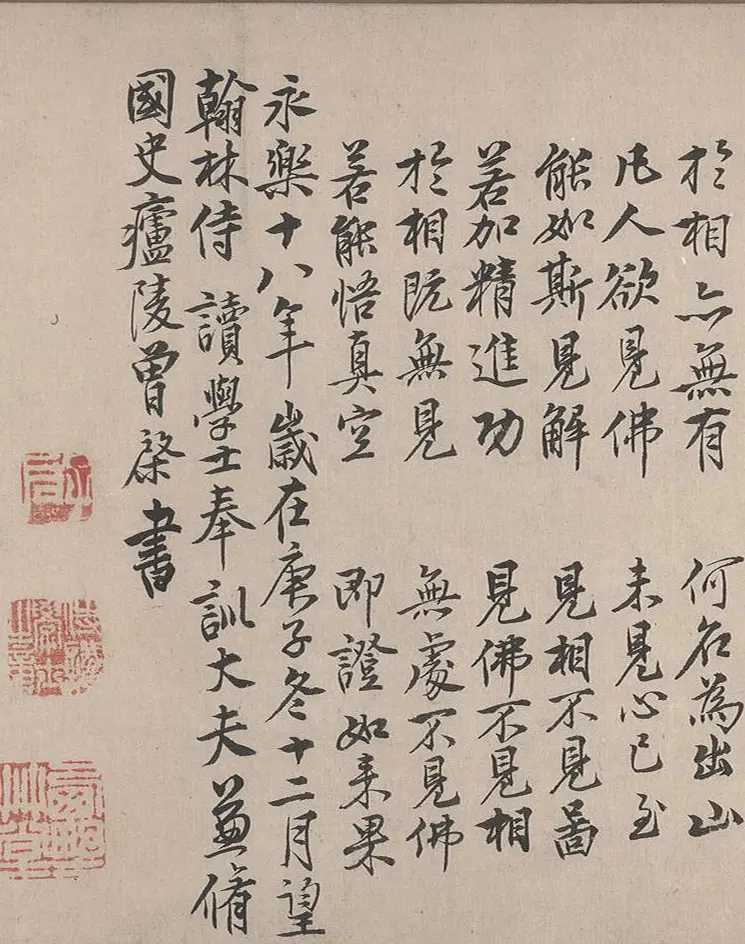 於相亦無有 何名為出山
凡人欲見佛 未見心已至
能如斯見解 見相不見啚
若加精進功 見佛不見相
於相既無見 無處不見佛
若能悟真空 即證如来果
永樂十八年歲在庚子冬十二月望
翰林侍讀學士奉訓大夫兼脩
國史廬陵曾棨書